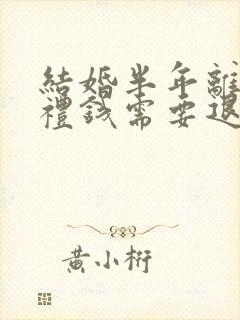 結婚半年離
禮錢需要退
黃小桁